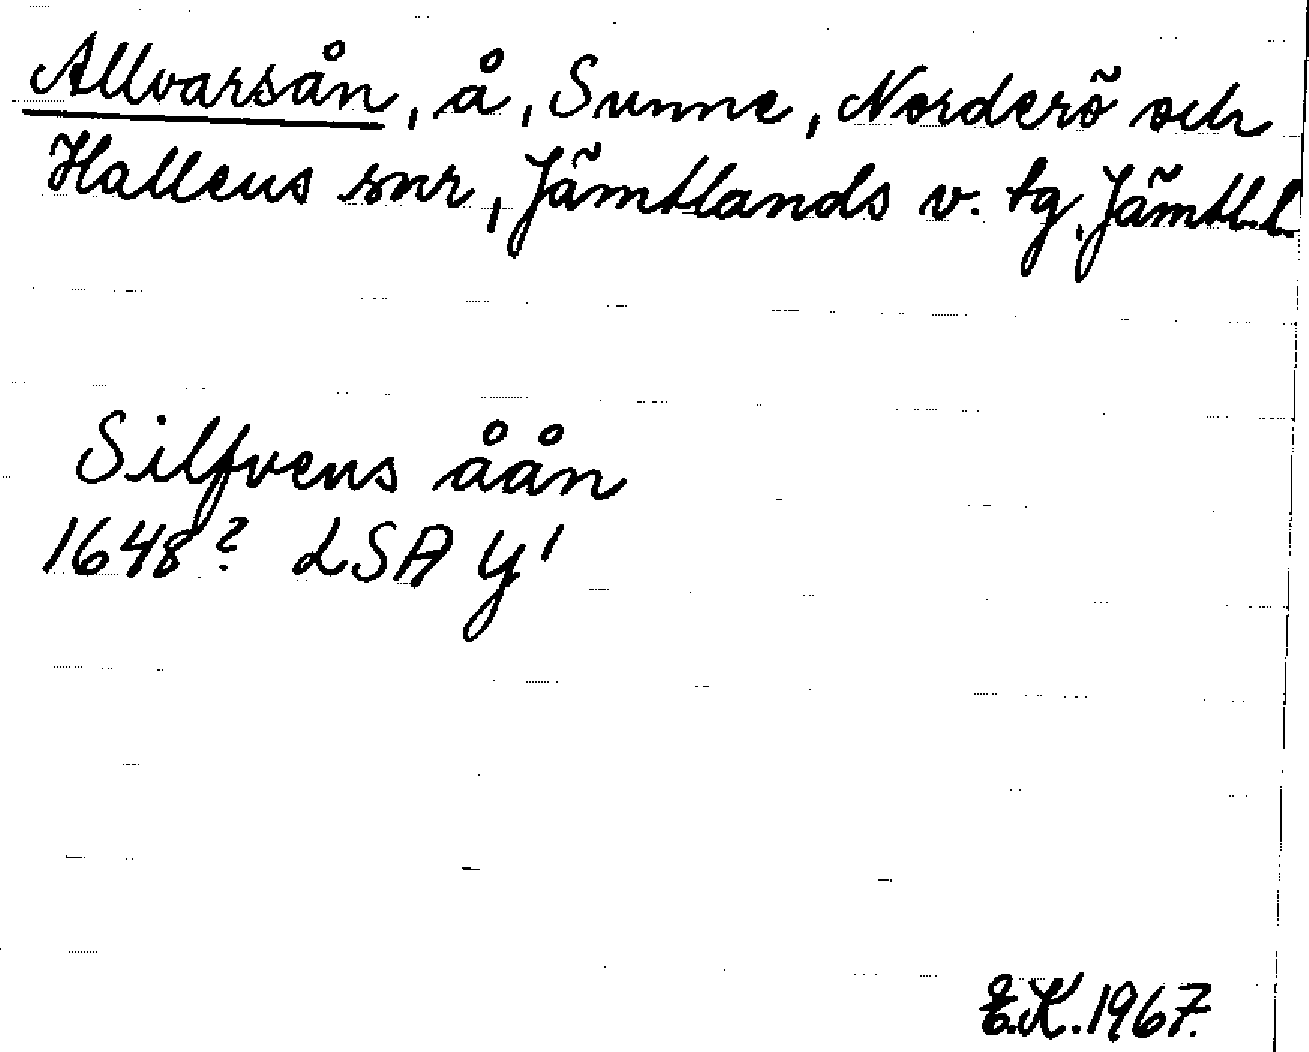 Allvarsån, å, Sunne, Norderö och
Hallens snr, Jämtlands v. tg, Jämtl. l.
Silfvens åån
1648? LSA Y'
E.K. 1967.